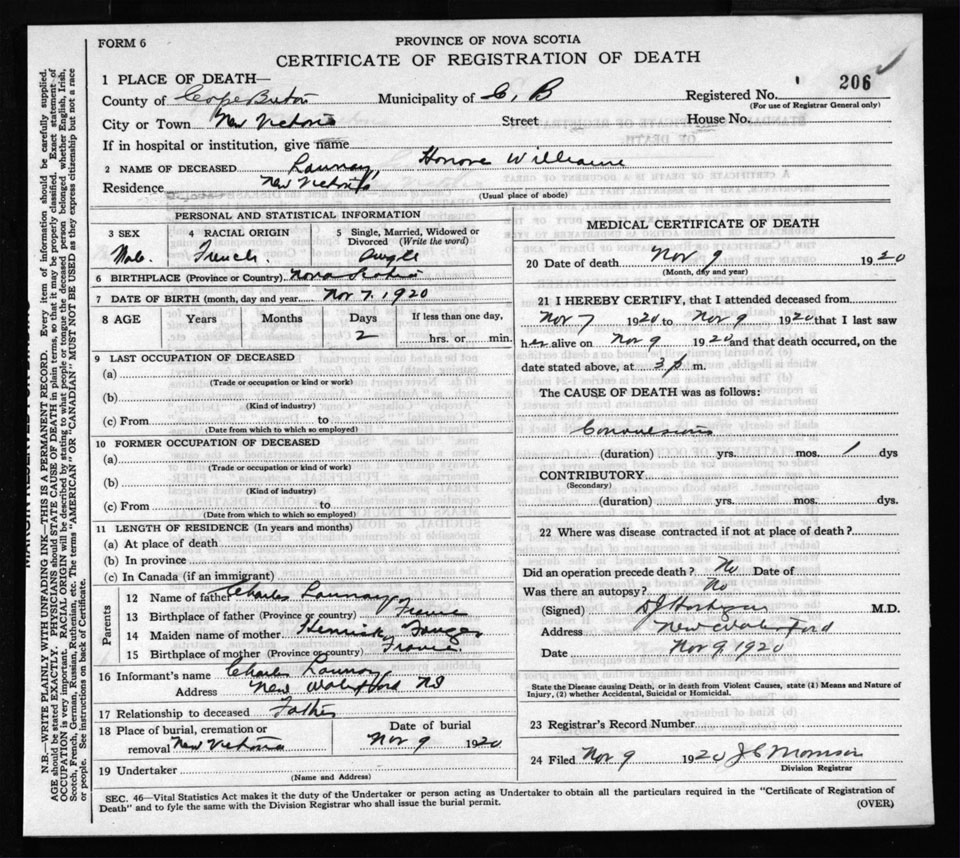 FORM 6
PROVINCE OF NOVA SCOTIA
CERTIFICATE OF REGISTRATION OF DEATH
1 PLACE OF DEATH—
Registered No. 206
(For use of Registrar General only)
County of Cape Breton Municipality of C, B
City or Town New Victoria Street House No.
If in hospital or institution, give name
2 NAME OF DECEASED Launay, Honore William
Residence New Victoria
(Usual place of abode)
PERSONAL AND STATISTICAL INFORMATION
3 SEX
Male
4 RACIAL ORIGIN
French
5 Single, Married, Widowed or Divorced (Write the word)
Single
6 BIRTHPLACE (Province or Country) Nova Scotia
7 DATE OF BIRTH (month, day and year) Nov 7, 1920
8 AGE Years Months Days If less than one day,
2 hrs. or min.
9 LAST OCCUPATION OF DECEASED
(a)
(Trade or occupation or kind or work)
(b)
(Kind of industry)
(c) From to
(Date from which to which so employed)
10 FORMER OCCUPATION OF DECEASED
(a)
(Trade or occupation or kind of work)
(b)
(Kind of industry)
(c) From to
(Date from which to which so employed)
11 LENGTH OF RESIDENCE (In years and months)
(a) At place of death
(b) In province
(c) In Canada (if an immigrant)
Parents
12 Name of father Charles Launay
13 Birthplace of father (Province or country) France
14 Maiden name of mother
15 Birthplace of mother (Province or country) France
16 Informant's name Charles Launay
Address New Waterford NS
17 Relationship to deceased Father
18 Place of burial, cremation or
removal New Victoria
Date of burial
Nov 9 1920
19 Undertaker
(Name and Address)
MEDICAL CERTIFICATE OF DEATH
20 Date of death Nov 9 1920
(Month, day and year)
21 I HEREBY CERTIFY, that I attended deceased from
Nov 7 1920 to Nov 9 1920 that I last saw
h alive on Nov 9 1920 and that death occurred, on the
date stated above, at 3 p m.
The CAUSE OF DEATH was as follows:
Convulsions
(duration) yrs. mos. 1 dys
CONTRIBUTORY
(Secondary)
(duration) yrs. mos. dys.
22 Where was disease contracted if not at place of death?
Did an operation precede death? No Date of
Was there an autopsy? No
(Signed) M.D.
Address New Waterford
Date Nov 9 1920
State the Disease causing Death, or in death from Violent Causes, state (1) Means and Nature of
Injury, (2) whether Accidental, Suicidal or Homicidal.
23 Registrar's Record Number
24 Filed Nov 9 1920 J C Morrison
Division Registrar
SEC. 46—Vital Statistics Act makes it the duty of the Undertaker or person acting as Undertaker to obtain all the particulars required in the "Certificate of Registration of
Death" and to fyle the same with the Division Registrar who shall issue the burial permit.
(OVER)
N.B.—WRITE PLAINLY WITH UNFADING INK—THIS IS A PERMANENT RECORD. Every item of information should be carefully supplied.
AGE should be stated EXACTLY. PHYSICIANS should STATE CAUSE OF DEATH in plain terms, so that it may be properly classified. Exact statement of
OCCUPATION is very important. RACIAL ORIGIN will be described by stating to what people or tongue the deceased person belonged, whether English, Irish,
Scotch, French, German, Russian, Ruthenian, etc. The terms "AMERICAN" OR "CANADIAN" MUST NOT BE USED as they express citizenship but not a race
or people. See instructions on back of Certificate.